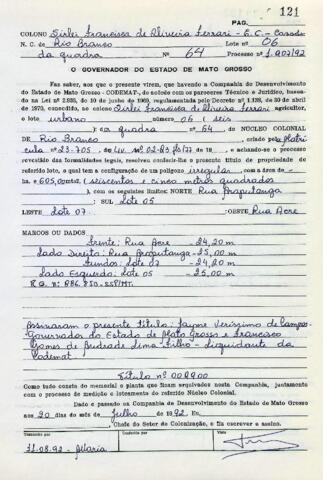 PÁG. 121
COLONO Sirlei Francisca de Oliveira Ferrari - E.C. - Casada
N. C. de Rio Branco Lote nº 06
da quadra Nº 64 Processo nº 1.907/92
O GOVERNADOR DO ESTADO DE MATO GROSSO
Faz saber, aos que o presente virem, que havendo a Companhia de Desenvolvimento
do Estado de Mato Grosso - CODEMAT-, de acordo com os pareceres Técnico e Jurídico, baseados
na Lei nº 2.835, de 10 de junho de 1969, regulamentada pelo Decreto nº 1.138, de 30 de abril
de 1973, concedido, ao colono Sirlei Francisca de Oliveira Ferrari agricultor,
o lote urbano número 06 ( seis
) da quadra nº 64, do NÚCLEO COLONIAL
DE Rio Branco, criado pela Matrí
cula nº 23.705, do Lv. nº 02-B3 fls 177 de 19 , e achando-se o processo
revestido das formalidades legais, resolveu conferir-lhe o presente título de propriedade de
referido lote, o qual tem a configuração de um polígono irregular, com a área de
ha. e 605,00 mts2. (seiscentos e cinco metros quadrados
), com os seguintes limites: NORTE Rua Araputanga
; SUL Lote 05
LESTE Lote 07 ; OESTE Rua Acre
MARCOS OU DADOS
Frente: Rua Acre - 24,20 m
Lado Direito: Rua Araputanga - 25,00 m
Fundos: Lote 07 - 24,20 m
Lado Esquerdo: Lote 05 - 25,00 m
R.G. nº 886.850-SSP/MT.
Assinaram o presente Título: Jayme Veríssimo de Campos-
Governador do Estado de Mato Grosso e Francisco
Gomes de Andrade Lima Filho - Liquidante da
Codemat.
Título nº 008900
Como tudo consta do memorial e planta que ficam arquivados nesta Companhia, juntamente
com o processo de medição e loteamento do referido Núcleo Colonial.
Dado e passado na Companhia de Desenvolvimento do Estado de Mato Grosso
aos 20 dias do mês de Julho de 1992 Eu,
, Chefe do Setor de Colonização, o fiz escrever e assino.
Visto
31.08.92